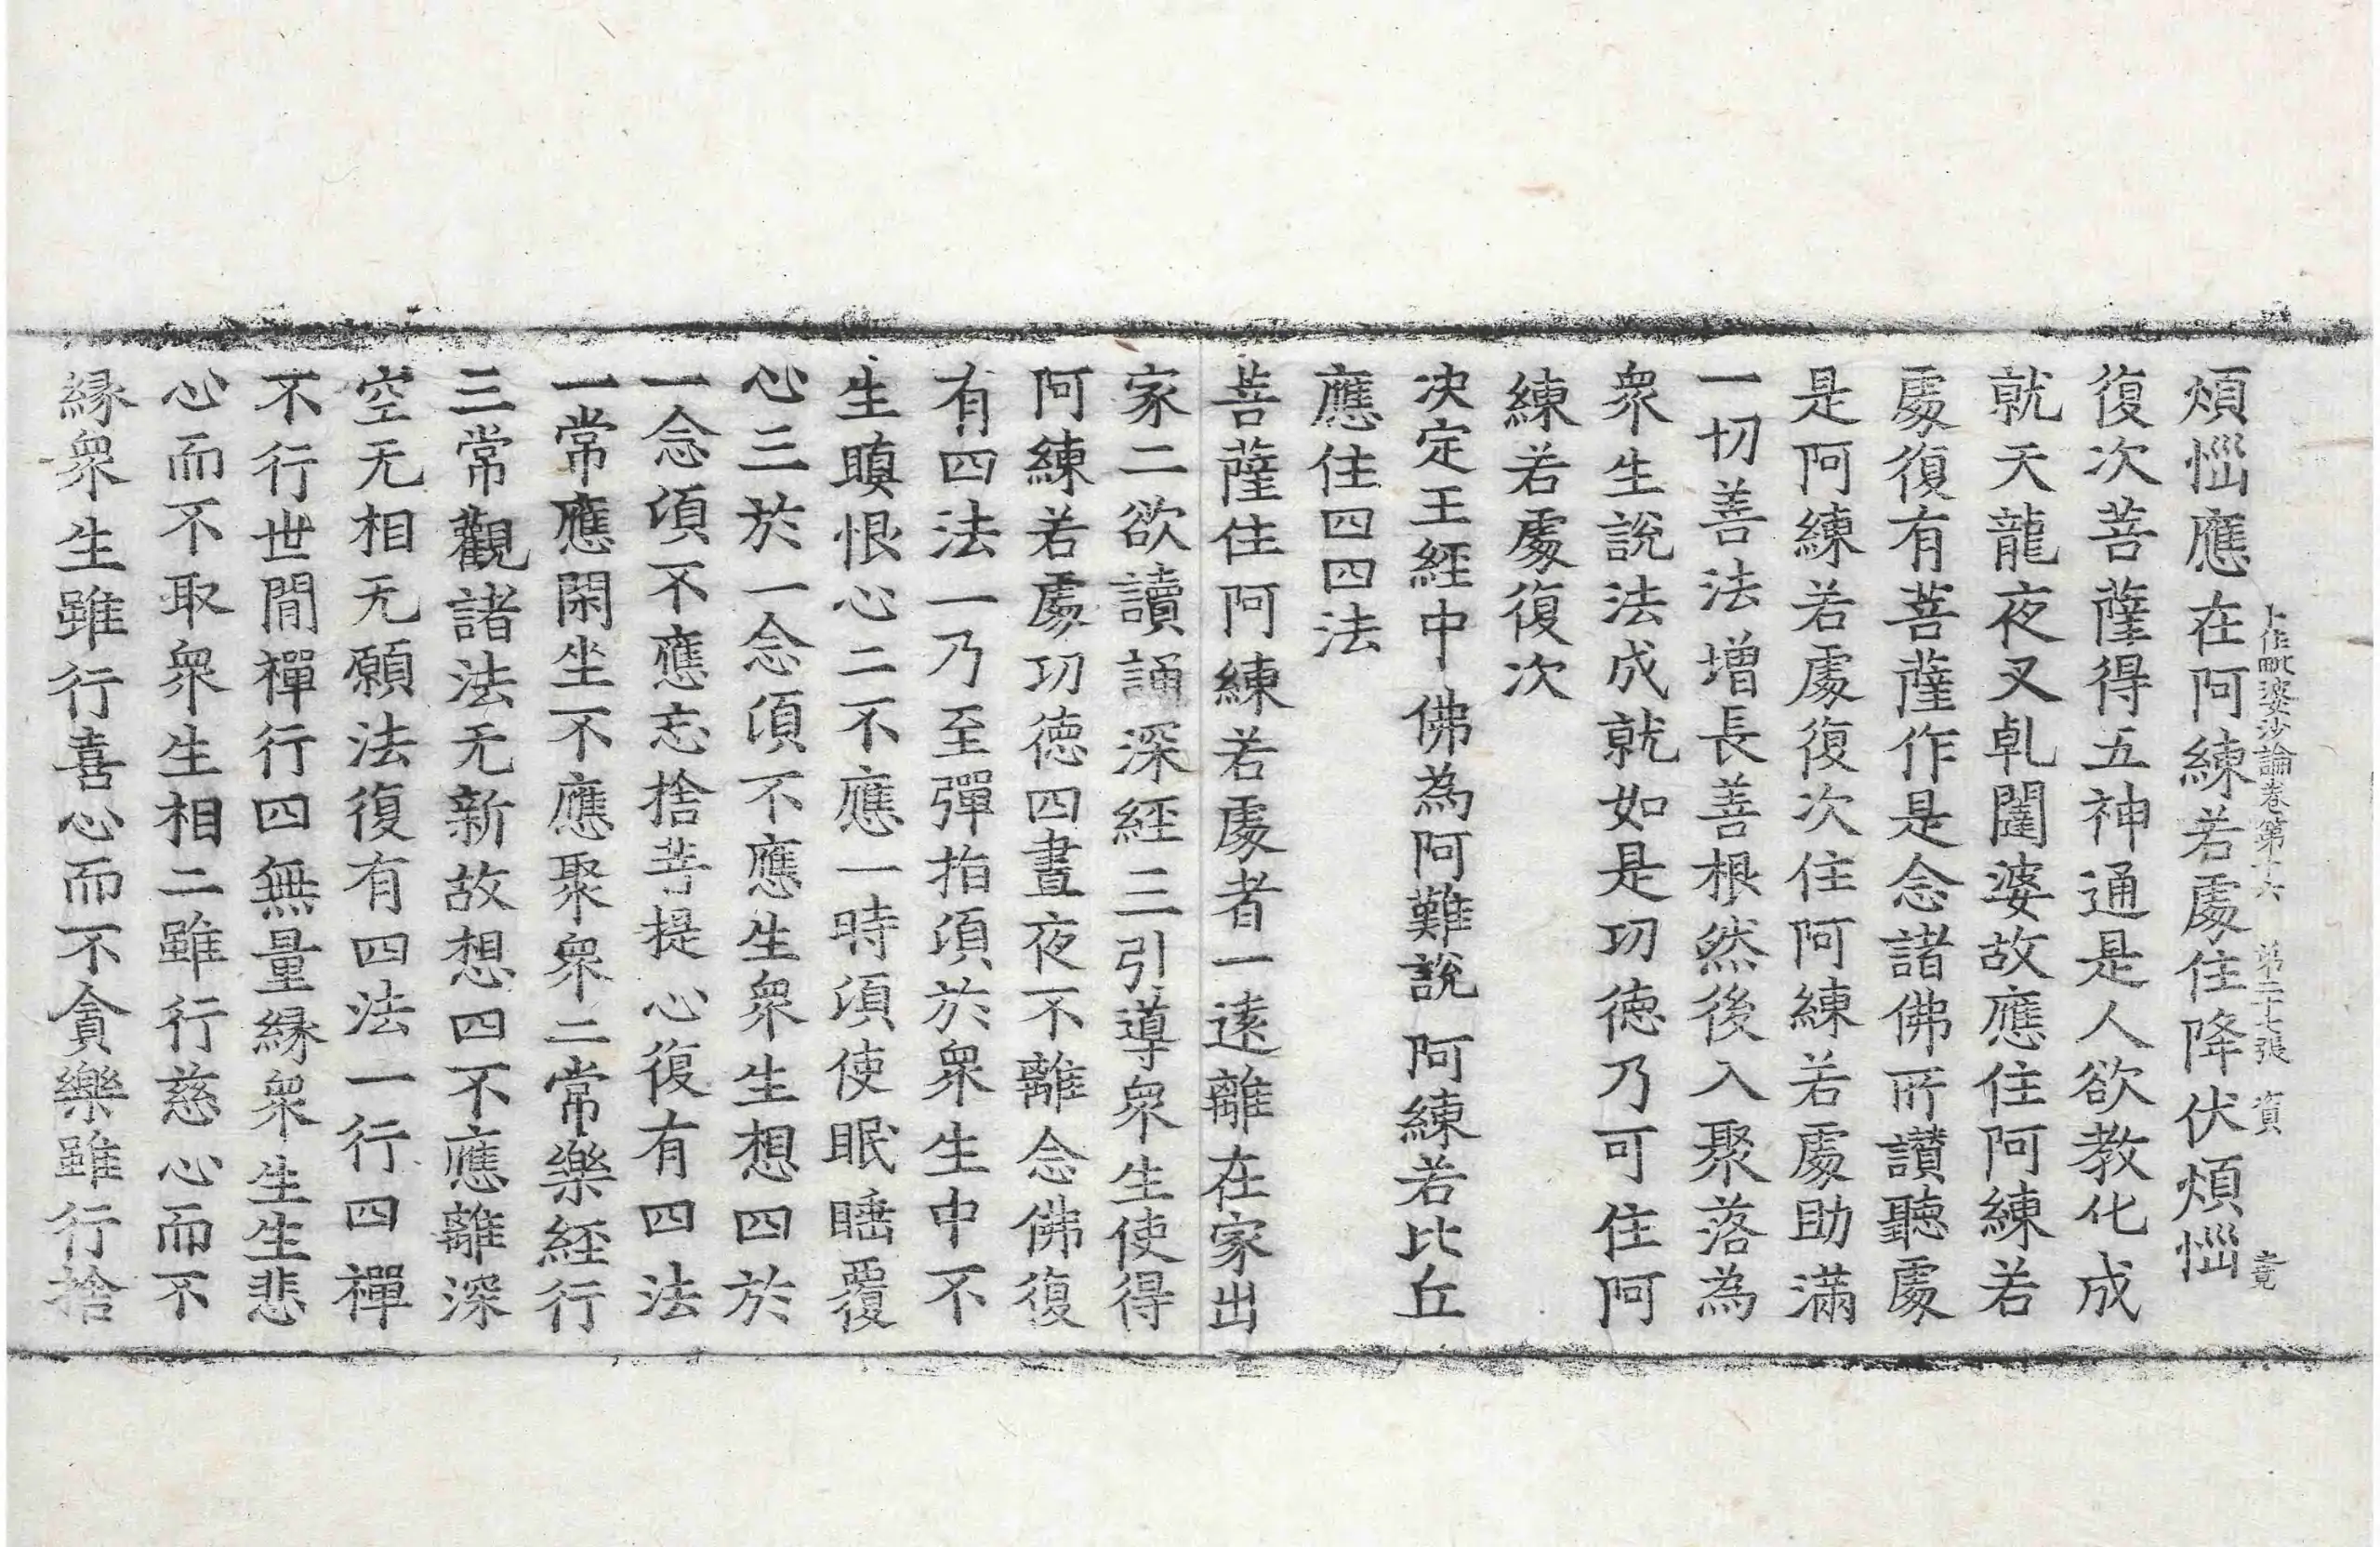 十住毗婆沙論卷第十六　第二十七張　賓　玄覺
煩惱應在阿練若處住降伏煩惱
復次菩薩得五神通是人欲教化成
就天龍夜叉乹闥婆故應住阿練若
處復有菩薩作是念諸佛所讃聽處
是阿練若處復次住阿練若處助滿
一切善法增長善根然後入聚落為
衆生說法成就如是功徳乃可住阿
練若處復次
决定王經中佛為阿難說阿練若比丘
應住四四法
菩薩住阿練若處者一遠離在家出
家二欲讀誦深經三引導衆生使得
阿練若處功徳四晝夜不離念佛復
有四法一乃至彈指湏於衆生中不
生瞋恨心二不應一時湏使眠睡覆
心三於一念湏不應生衆生想四於
一念湏不應忘捨菩提心復有四法
一常應閑坐不應聚衆二常樂経行
三常觀諸法无新故想四不應離深
空无相无願法復有四法一行四禪
不行世間禪行四無量緣衆生生悲
心而不取衆生相二雖行慈心而不
緣衆生雖行喜心而不貪樂雖行捨